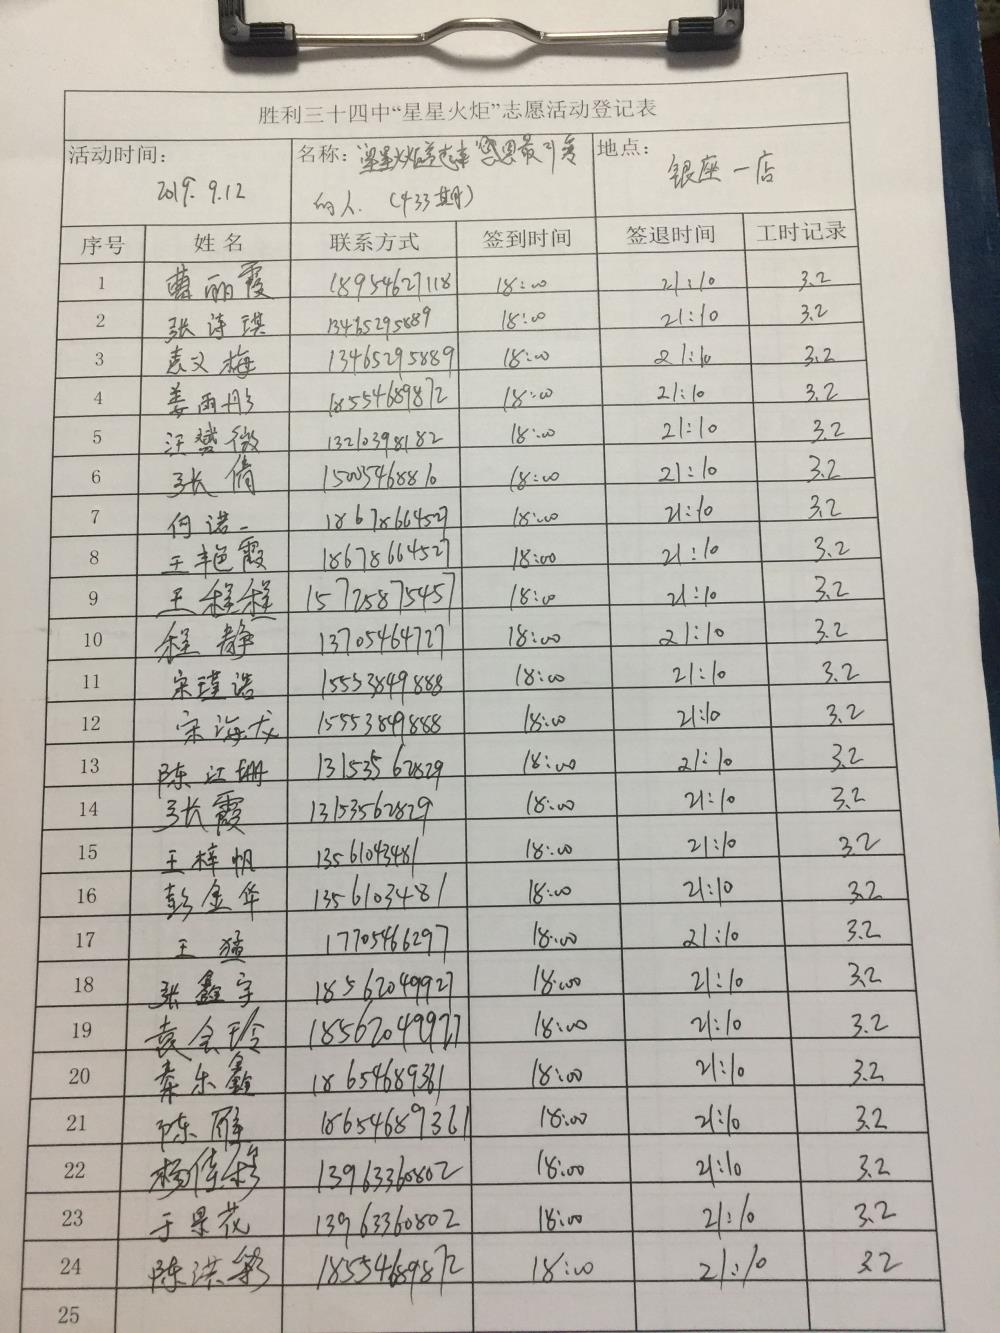 胜利三十四中“星星火炬”志愿活动登记表
活动时间： 名称：星星火炬 感恩最可爱 地点：
2019.9.12 的人.（433期） 银座一店
序号 姓名 联系方式 签到时间 签退时间 工时记录
1 曹丽霞 18954627118 18:00 21:10 3.2
2 张诗琪 13465295889 18:00 21:10 3.2
3 袁义梅 13465295889 18:00 21:10 3.2
4 姜雨彤 18554689872 18:00 21:10 3.2
5 汪赟微 13210398182 18:00 21:10 3.2
6 张倩 15005468810 18:00 21:10 3.2
7 何诺一 18678664527 18:00 21:10 3.2
8 王艳霞 18678664527 18:00 21:10 3.2
9 王程程 15725875457 18:00 21:10 3.2
10 程静 13705464727 18:00 21:10 3.2
11 宋瑾浩 15553849888 18:00 21:10 3.2
12 宋海龙 15553849888 18:00 21:10 3.2
13 陈江珊 13153562829 18:00 21:10 3.2
14 张霞 13153562829 18:00 21:10 3.2
15 王梓帆 1356103481 18:00 21:10 3.2
16 彭金华 1356103481 18:00 21:10 3.2
17 王 17705466297 18:00 21:10 3.2
18 张鑫宇 18562049927 18:00 21:10 3.2
19 袁会玲 18562049927 18:00 21:10 3.2
20 秦乐鑫 18654689361 18:00 21:10 3.2
21 陈雁 18654689361 18:00 21:10 3.2
22 杨佳彬 13963360802 18:00 21:10 3.2
23 于果花 13963360802 18:00 21:10 3.2
24 陈洪彩 18554689872 18:00 21:10 3.2
25